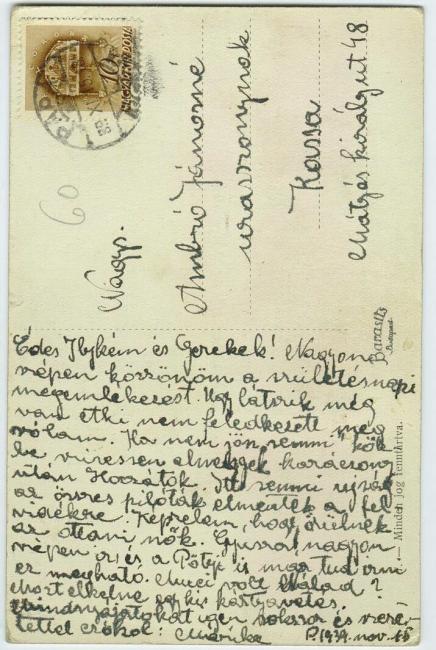 60
Nagys.
Ambró Jánosné
urasszonynak
Kassa
Mátyás király út 48
Barasits
Budapest
Minden jog fenntartva.
Édes Ilykém és Gerekek! Nagyon
szépen köszönöm a születésnapi
megemlékezést. Úgy látszik még
van a ki nem feledkezett meg
rólam. Ha nem jön semmi közbe
be vizessen elmegyek karácsony
után Hozzátok. Itt semmi ujság
az összes pilóták elmentek a fel
vidékre. Képzelem, hogy örülnek
az ottani nők. Gyuszi nagyon
szépen ír és a Pötyi is már tud írni
ez megható. Mucci volt nálad?
Most elkelne egy kis kártyavetés
Mindnyájatokat igen sokszor és szere-
tettel csókol: Marika
P. 1939. nov. 16